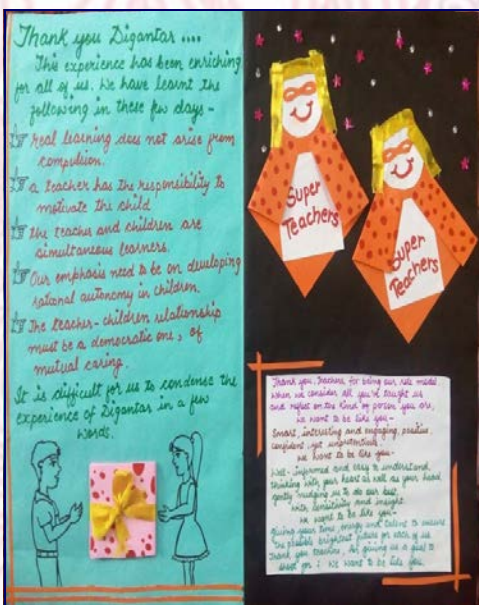 Thank you Digantar ....
This experience has been enriching
for all of us. We have learnt the
following in these few days -
real learning does not arise from
compulsion.
a teacher has the responsibility to
motivate the child
the teacher and children are
simultaneous learners.
Our emphasis need to be on developing
rational autonomy in children.
The teacher-children relationship
must be a democratic one, of
mutual caring.
It is difficult for us to condense the
experience of Digantar in a few
words.
Super
Teachers
Super
Teachers
Thank you, Teachers, for being our role model
When we consider all you've taught us
and reflect on the kind of person you are,
we want to be like you-
Smart, interesting and engaging, positive,
confident yet unpretentious.
We want to be like you-
Well-informed and easy to understand
thinking with your heart as well as your head,
gently nudging us to do our best,
with sensitivity and insight.
we want to be like you-
giving your time, energy and talent to ensure
the possible brightest future for each of us
Thank you teachers, for giving us a goal to
shoot for: We want to be like you.